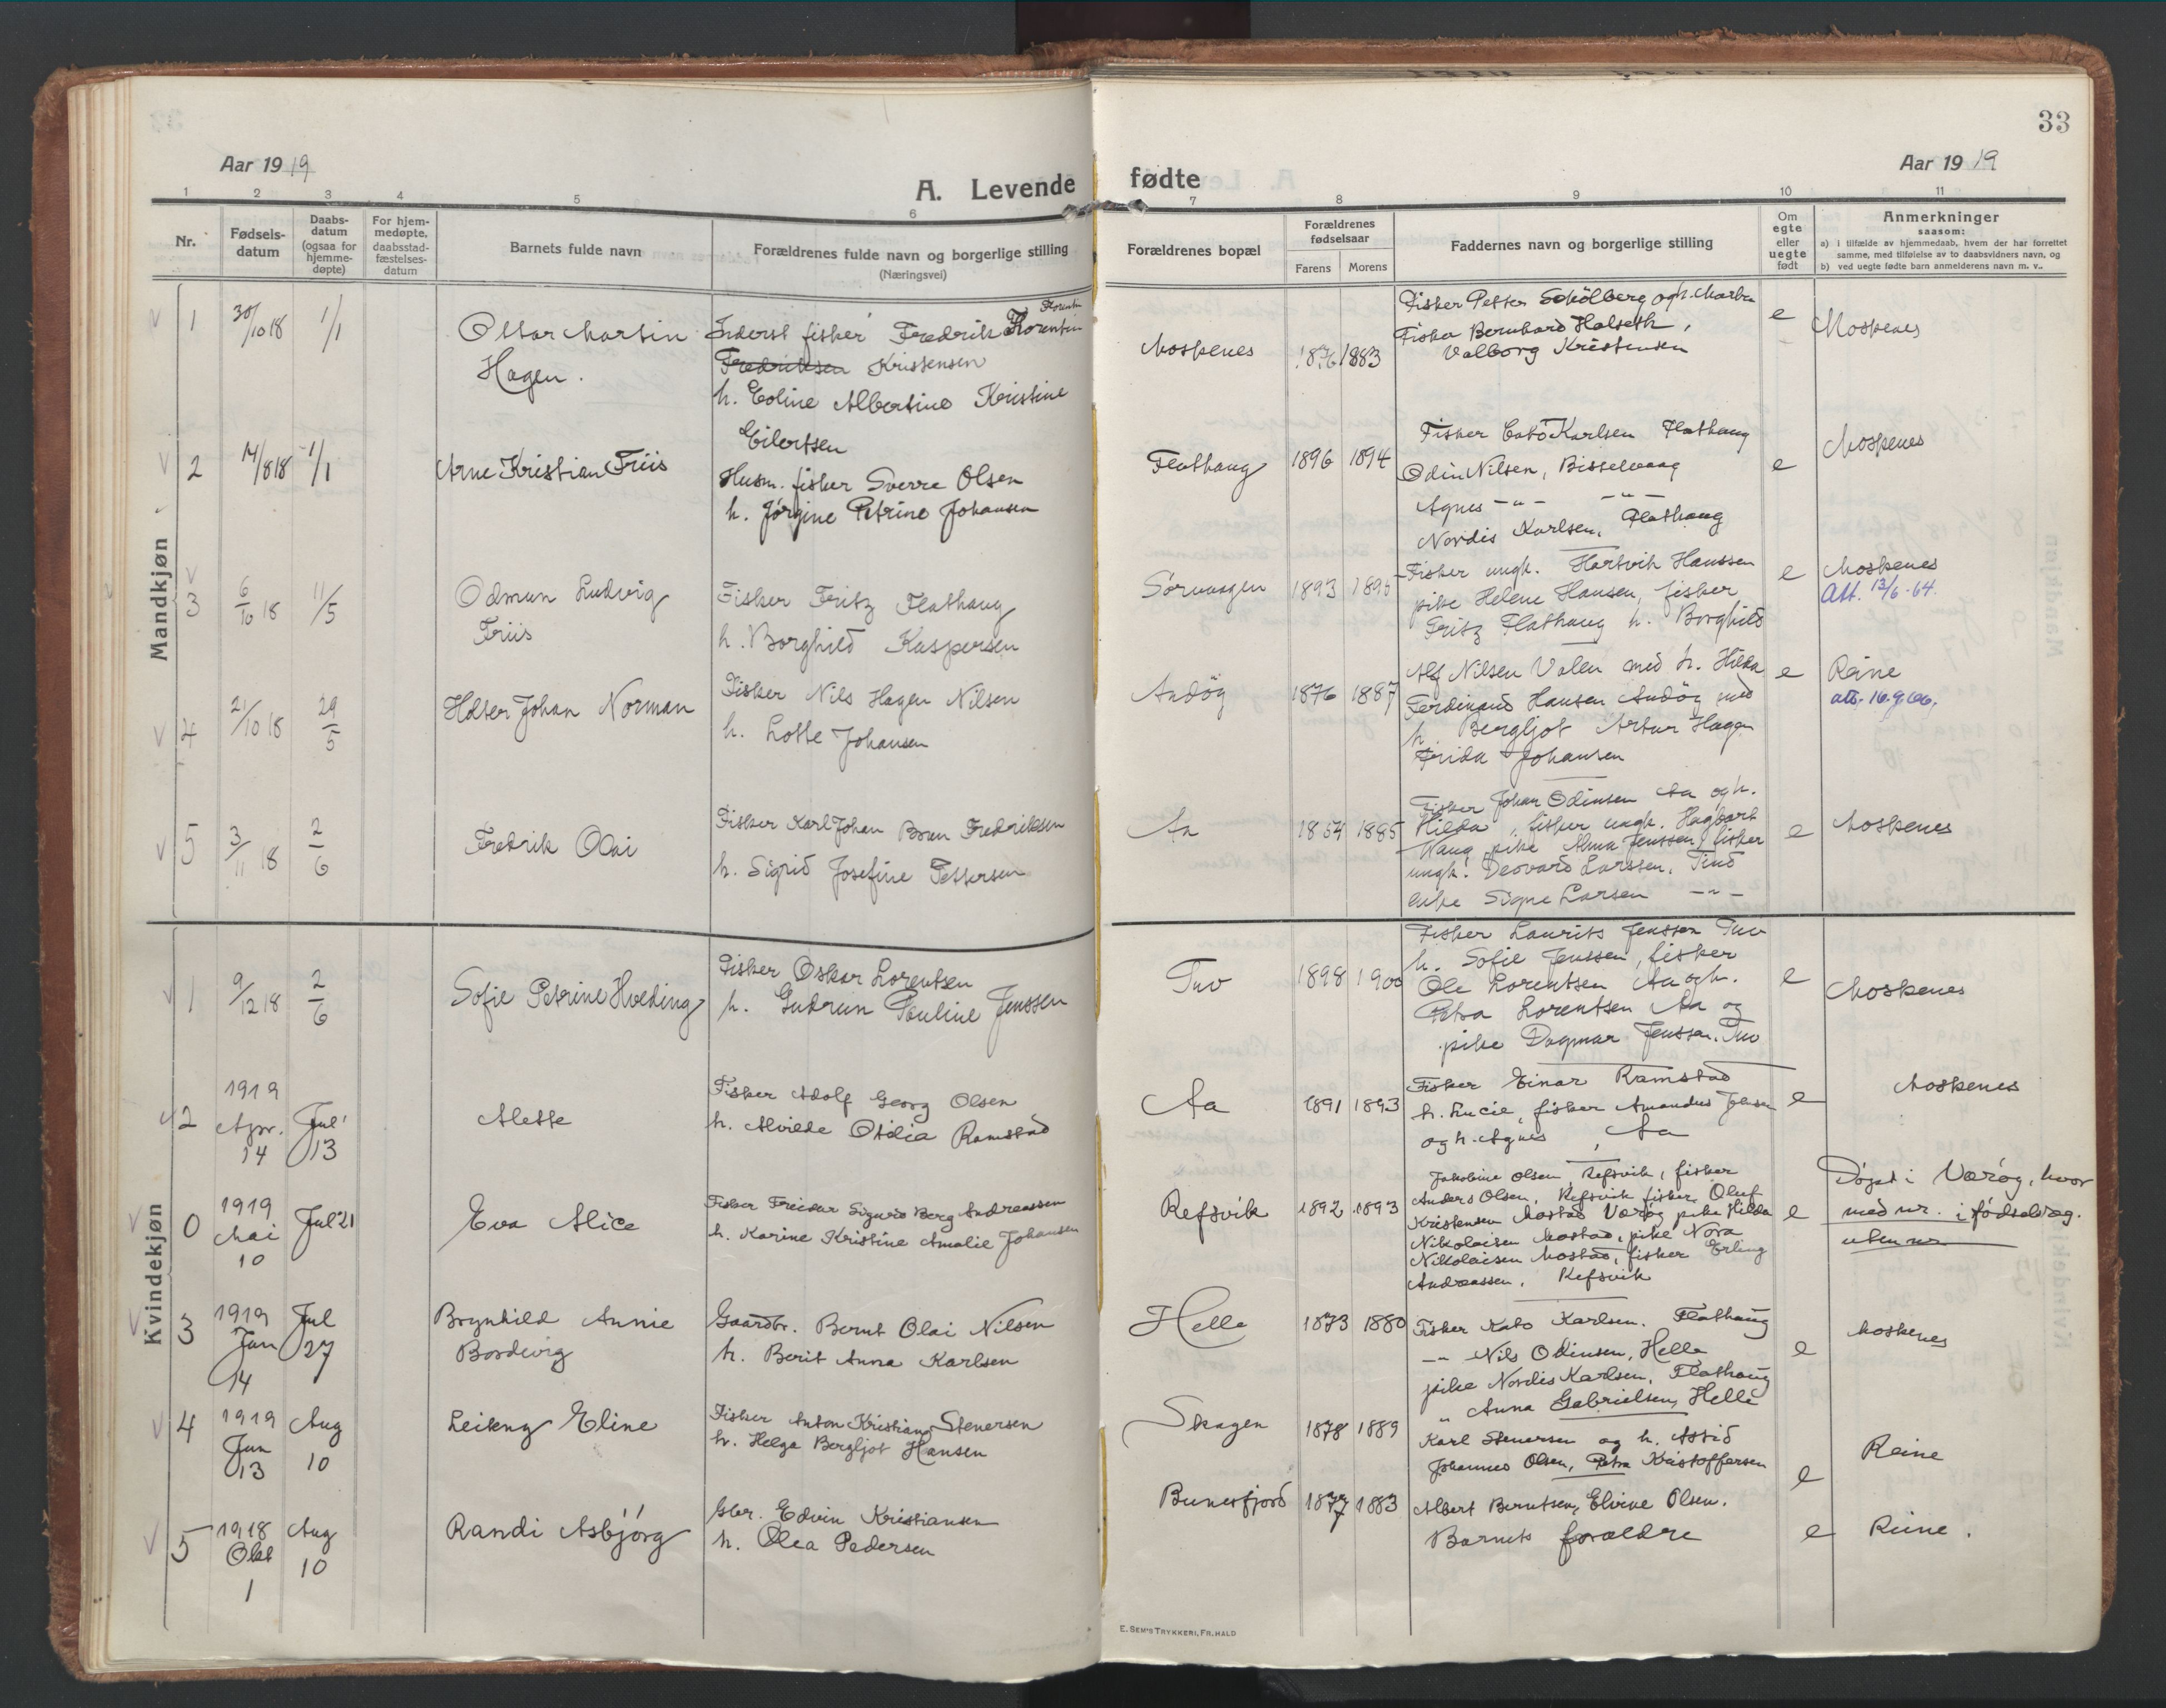 33
Aar 1919
A. Levende
fødte
Aar 1919
1 2 3 4 5 6 7 8 9 10 11
Nr.
Fødsels-
datum
Daabs-
datum
(ogsaa for
hjemme-
døpte)
For hjem-
medøpte,
daabsstad-
fæstelses-
datum
Barnets fulde navn
Forældrenes fulde navn og borgerlige stilling
(Næringsvei)
Forældrenes bopæl
Forældrenes
fødselsaar
Farens Morens
Faddernes navn og borgerlige stilling
Om
egte
eller
uegte
født
Anmerkninger
saasom:
a) i tilfælde av hjemmedaab, hvem der har forrettet
samme, med tilføielse av to daabsvidners navn, og
b) ved uegte fødte barn anmelderens navn m. v..
Mandkjøn
1 30/10 18 1/1
Ottar Martin
Hagen.
Inderst fisker Fredrik Florentin
Florentin
Fredriksen Kristensen
h. Eoline Albertine Kristine
Eilertsen
Moskenes 1876 1883
Fisker Petter Schölberg og h. Martha
Fisker Bernhard Halseth,
Valborg Kristensen
e
Moskenes
2 14/8 18 1/1
Arne Kristian Friis
Husm. fisker Sverre Olsen
h. Jørgine Petrine Johansen
Flathaug 1896 1894
Fisker Cato Karlsen Flathaug
Odin Nilsen, Bisselvaag
Agnes -"- -"-
Nordis Karlsen, Flathaug
e
Moskenes
3 6/10 18 11/5
Odmun Ludvig
Friis
Fisker Fritz Flathaug
h. Borghild Kaspersen
Sørvaagen 1893 1895
Fisker ungk. Hartvik Hanssen
pike Helene Hansen, fisker
Fritz Flathaug h. Borghild
e
Moskenes
Att. 13/6-64.
4 21/10 18 29/5
Holger Johan Norman
Fisker Nils Hagen Nilsen
h. Lotte Johansen
Andøg 1876 1887
Alf Nilsen Valen med h. Hilda
Ferdinand Hansen Andøg med
h. Bergljot Artur Hagen
Frida Johansen
e
Reine
att. 16.9.66.
5 3/11 18 2/6
Fredrik Olai
Fisker Karl Johan Bran Fredriksen
h. Sigrid Josefine Pettersen
Aa 1884 1885
Fisker Johan Odinsen Aa og h.
Hilda, fisker ungk. Hagbart
Wang, pike Alma Jenssen, fisker
ungk. Deovard Larssen, Tind
pike Signe Larsen -"-
e
Moskenes
Kvindekjøn
1 9/12 18 2/6
Sofie Petrine Hveding
Fisker Oskar Lorentsen
h. Gudrun Pauline Jenssen
Tuv 1898 1900
Fisker Laurits Jenssen Tuv
h. Sofie Jenssen, fisker
Ole Lorentsen Aa og h.
Petra Lorentsen Aa og
pike Dagmar Jenssen. Tuv
e
Moskenes
2 1919 Apr. 14 Jul 13
Alette
Fisker Adolf Georg Olsen
h. Alvilde Otidia Ramstad
Aa 1891 1893
Fisker Einar Ramstad
h. Lucie, fisker Amandus Johnsen
og h. Agnes, Aa
e
Moskenes
0 1919 Mai 10 Jul 21
Eva Alice
Fisker Freidar Sigurd Berg Andreassen
h. Karine Kristine Amalie Johansen
Refsvik 1892 1893
Jakobine Olsen, Refsvik, fisker
Anders Olsen, Refsvik fisker Oluf
Kristensen Mostad Værøg pike Hilda
Nikolaisen Mostad, pike Nora
Nikolaisen Mostad, fisker Erling
Andreassen, Refsvik
e
Døpt i Værøg, hvor
med nr. i fødselreg.
uten nr
3 1919 Jan 14 Jul 27
Brynhild Annie
Bordevig
Gaardbr. Bernt Olai Nilsen
h. Berit Anna Karlsen
Helle 1873 1880
Fisker Kato Karlsen. Flathaug
-"- Nils Odinsen, Helle
pike Nordis Karlsen, Flathaug
" Anna Gabrielsen, Helle
e
Moskenes
4 1919 Jun 13 Aug 10
Leikny Eline
Fisker Anton Kristian Stenersen
h. Helga Bergljot Hansen
Skagen 1878 1889
Karl Stenersen og h. Astrid
Johannes Olsen, Petra Kristoffersen
e
Reine
5 1918 Okt 1 Aug 10
Randi Asbjörg
Gbr. Edvin Kristiansen
h. Olea Pedersen
Bunesfjord 1877 1883
Albert Berntsen, Elvine Olsen.
Barnets forældre
e
Reine.
E. SEM'S TRYKKERI, FR.HALD